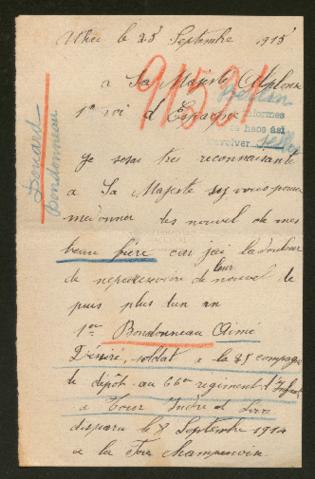 Uhei le 23 Septembre 1915
a Sa Majeste Alphonse
1er roi d'Espagne
91531
Berlin
informes
haos asi
volver
Douard
Bondonneau
Je serai tres reconnaissante
a Sa Majeste si vous pouve
me donner des nouvel de mes
beau frère car jai la douleur
de ne pas recevoir de leur nouvel de
puis plus dun an
1er Bondonneau Aimé
Désiré, soldat a la 25 compagn
le dépôt au 66me regiment d'Infan
a Tour Indre et Loire
disparu le 8 Septembre 1914
a la Fere Champenoise